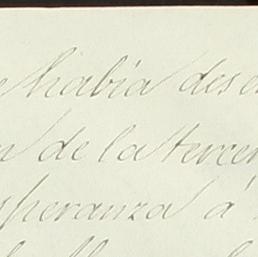 había des
de la tercer
speranza á